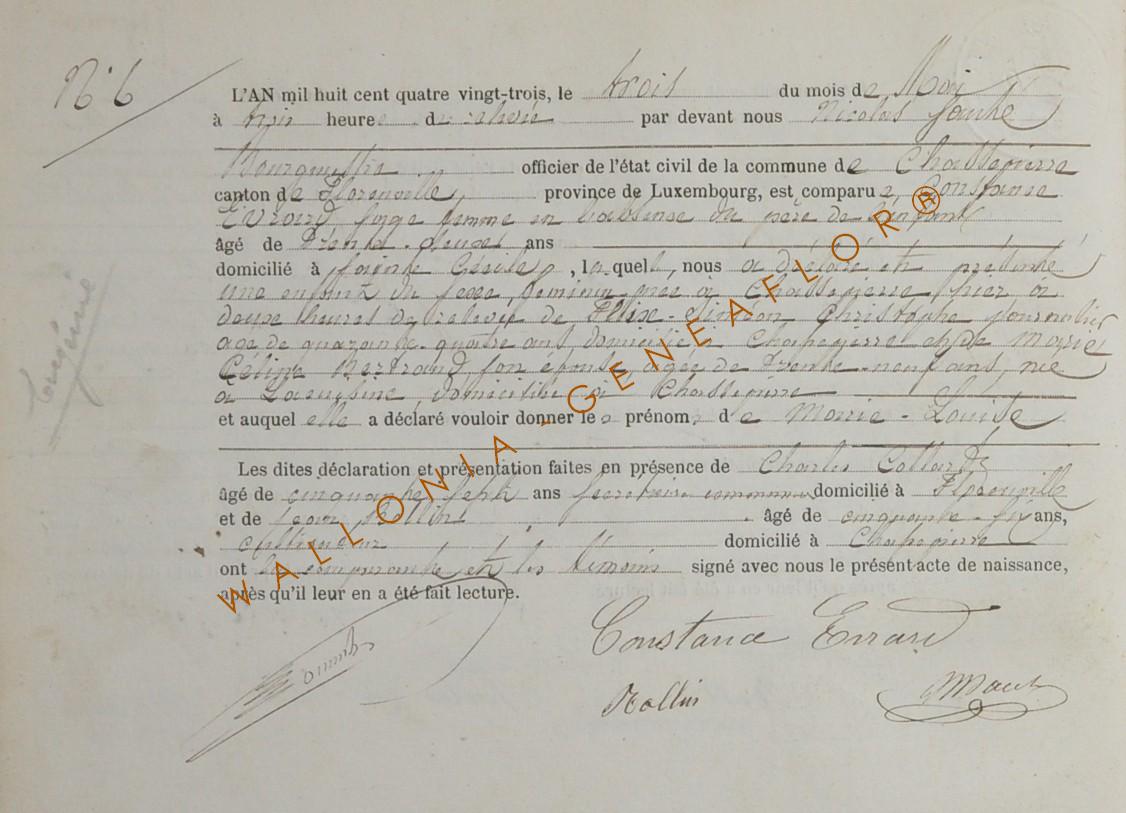 N° 6
L'AN mil huit cent quatre vingt-trois, le trois du mois de Mai
à trois heures de relevée par devant nous Nicolas
Bourgmestre officier de l'état civil de la commune de Chassepierre
canton de Florenville, province de Luxembourg, est comparue Constance
Evrard sage femme en l'absence du père de l'enfant
âgé de trente-deux ans
domicilié à Sainte Cécile, laquelle, nous a déclaré et présenté
une enfant du sexe féminin née à Chassepierre hier à
douze heures de relevée de Félix-Siméon Christophe journalier
agé de quarante-quatre ans domicilié à Chassepierre et de Marie
Céline Bertrand son épouse, agée de trente-neuf ans, née
à Lacuisine, domiciliée à Chassepierre
et auquel elle a déclaré vouloir donner le prénom de Marie-Louise
Les dites déclaration et présentation faites en présence de Charles Collard
âgé de cinquante sept ans secrétaire communal domicilié à Florenville
et de Rollin âgé de cinquante-six ans,
cultivateur domicilié à Chassepierre
ont la comparante et les témoins signé avec nous le présent acte de naissance,
après qu'il leur en a été fait lecture.
Constance Evrard
Rollin
WALLONIA - GENEAFLOR®